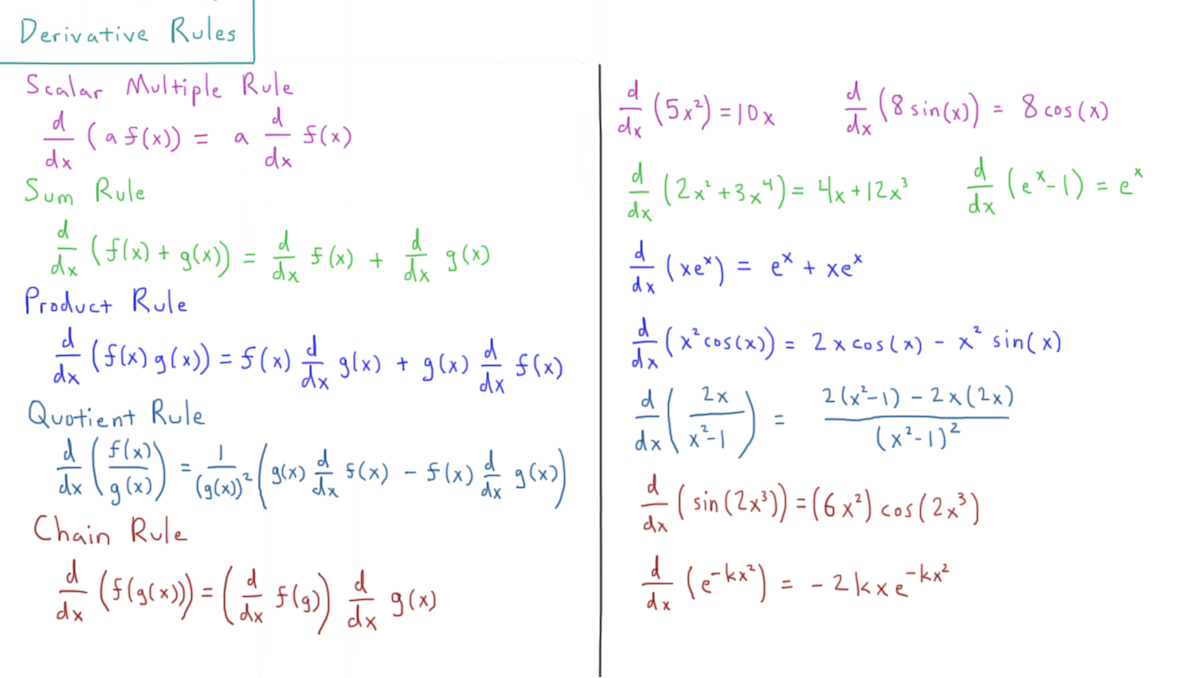 Derivative Rules
Scalar Multiple Rule
d/dx (a f(x)) = a d/dx f(x)
Sum Rule
d/dx (f(x) + g(x)) = d/dx f(x) + d/dx g(x)
Product Rule
d/dx (f(x) g(x)) = f(x) d/dx g(x) + g(x) d/dx f(x)
Quotient Rule
d/dx (f(x)/g(x)) = 1/(g(x))² (g(x) d/dx f(x) - f(x) d/dx g(x))
Chain Rule
d/dx (f(g(x))) = (d/dx f(g)) d/dx g(x)
d/dx (5x²) = 10x d/dx (8 sin(x)) = 8 cos(x)
d/dx (2x² + 3x⁴) = 4x + 12x³ d/dx (eˣ - 1) = eˣ
d/dx (xeˣ) = eˣ + xeˣ
d/dx (x² cos(x)) = 2x cos(x) - x² sin(x)
d/dx (2x/(x²-1)) = (2(x²-1) - 2x(2x))/(x²-1)²
d/dx (sin(2x³)) = (6x²) cos(2x³)
d/dx (e^(-kx²)) = -2kxe^(-kx²)